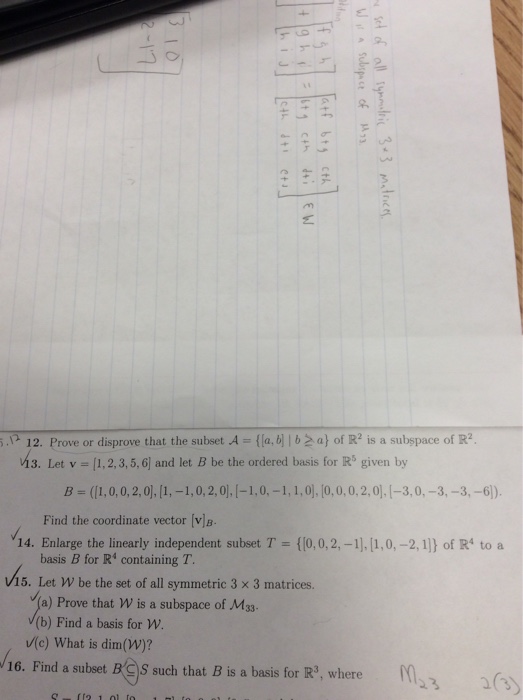 set of all symmetric 3x3 matrices
W is a subspace of M33
[f g h] [a+f b+g c+h]
+ [g h i] = [b+g c+h d+i] ∈ W
[h i j] [c+h d+i e+j]
3 1 0
2 -1 7
12. Prove or disprove that the subset A = {[a, b] | b ≥ a} of ℝ² is a subspace of ℝ².
√13. Let v = [1, 2, 3, 5, 6] and let B be the ordered basis for ℝ⁵ given by
B = ([1, 0, 0, 2, 0], [1, −1, 0, 2, 0], [−1, 0, −1, 1, 0], [0, 0, 0, 2, 0], [−3, 0, −3, −3, −6]).
Find the coordinate vector [v]B.
√14. Enlarge the linearly independent subset T = {[0, 0, 2, −1], [1, 0, −2, 1]} of ℝ⁴ to a
basis B for ℝ⁴ containing T.
√15. Let W be the set of all symmetric 3 × 3 matrices.
√(a) Prove that W is a subspace of M33.
√(b) Find a basis for W.
√(c) What is dim(W)?
√16. Find a subset B ⊆ S such that B is a basis for ℝ³, where
M23 2(3)